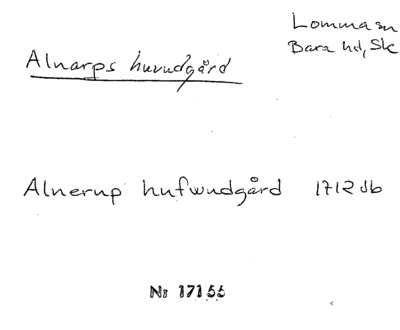 Lomma sn
Bara hd, Sk
Alnarps huvudgård
Alnerup hufwudgård 1712 Jb
Nr 17155